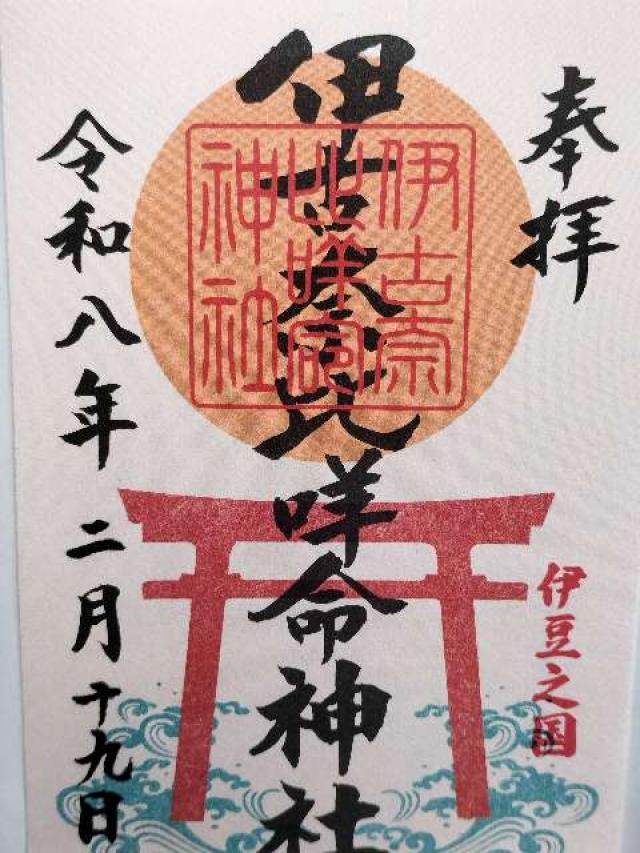 奉拝
伊豆之国
伊古奈比咩命神社
伊古奈
比咩命
神社
令和八年二月十九日